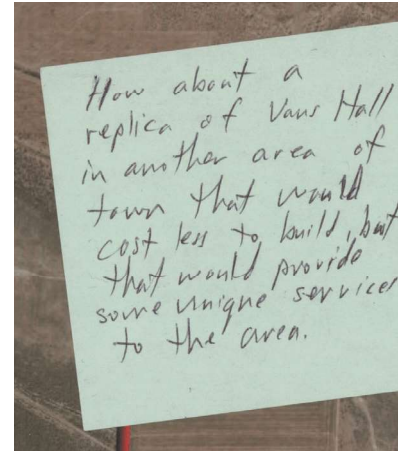 How about a
replica of Vans Hall
in another area of
town that would
cost less to build, but
that would provide
some unique services
to the area.